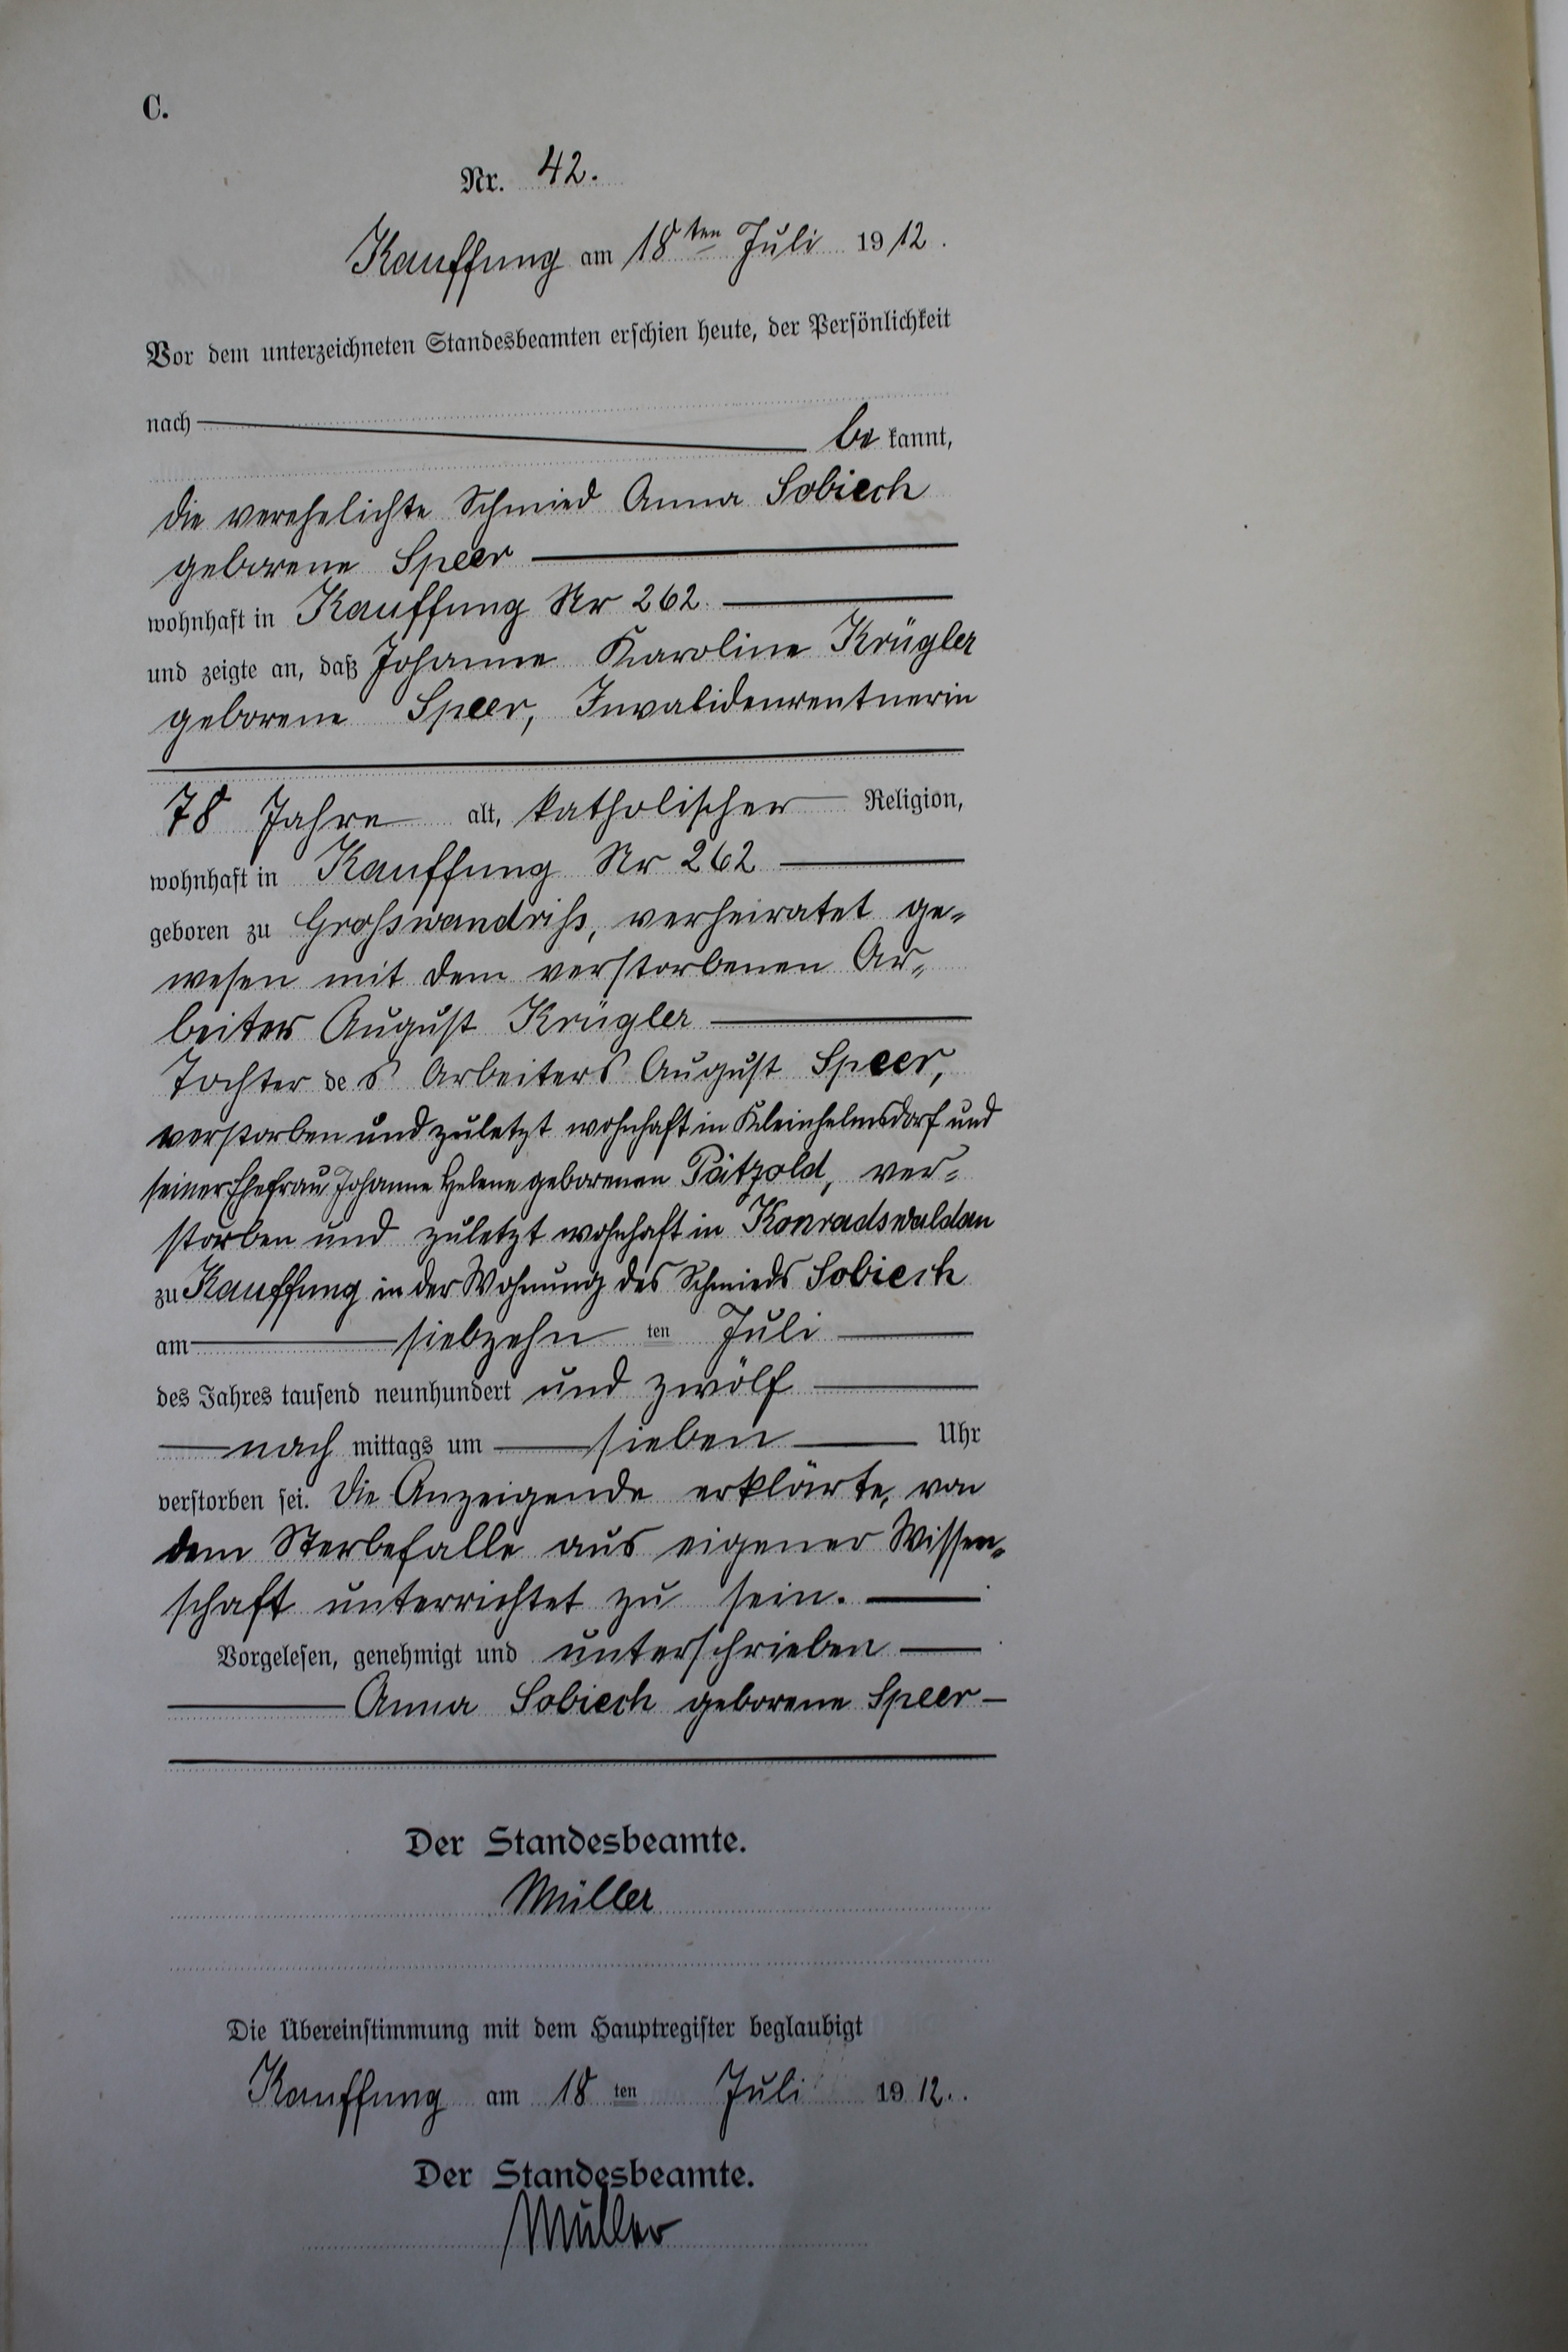 C.
Nr. 42.
Kauffung am 18ten Juli 1912.
Vor dem unterzeichneten Standesbeamten erschien heute, der Persönlichkeit
nach be kannt,
die verehelichte Schmied Anna Sobiech
geborene Speer
wohnhaft in Kauffung Nr 262
und zeigte an, daß Johanne Karoline Krügler
geborene Speer, Invalidenrentnerin
78 Jahre alt, katholischer Religion,
wohnhaft in Kauffung Nr 262
geboren zu Großwandriß, verheiratet ge-
wesen mit dem verstorbenen Ar-
beiter August Krügler
Tochter des Arbeiters August Speer,
verstorben und zuletzt wohnhaft in Kleinhelmsdorf und
seiner Ehefrau Johanne Helene geborenen Pätzold, ver-
storben und zuletzt wohnhaft in Konradswaldau
zu Kauffung in der Wohnung des Schmieds Sobiech
am siebzehn ten Juli
des Jahres tausend neunhundert und zwölf
nach mittags um sieben Uhr
verstorben sei. Die Anzeigende erklärte, von
dem Sterbefalle aus eigener Wissen-
schaft unterrichtet zu sein.
Vorgelesen, genehmigt und unterschrieben
Anna Sobiech geborene Speer
Der Standesbeamte.
Müller
Die Übereinstimmung mit dem Hauptregister beglaubigt
Kauffung am 18 ten Juli 1912.
Der Standesbeamte.
Müller